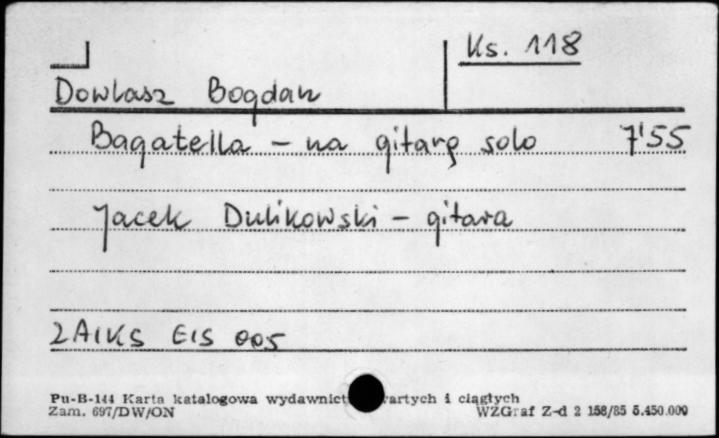 Ks. 118
Dowlasz Bogdan
Bagatella – na gitarę solo 7'55
Jacek Dulikowski – gitara
ZAIKS EIS 005
Pu-B-144 Karta katalogowa wydawnict wartych i ciągłych
Zam. 697/DW/ON WZGraf Z-d 2 158/85 5.450.000